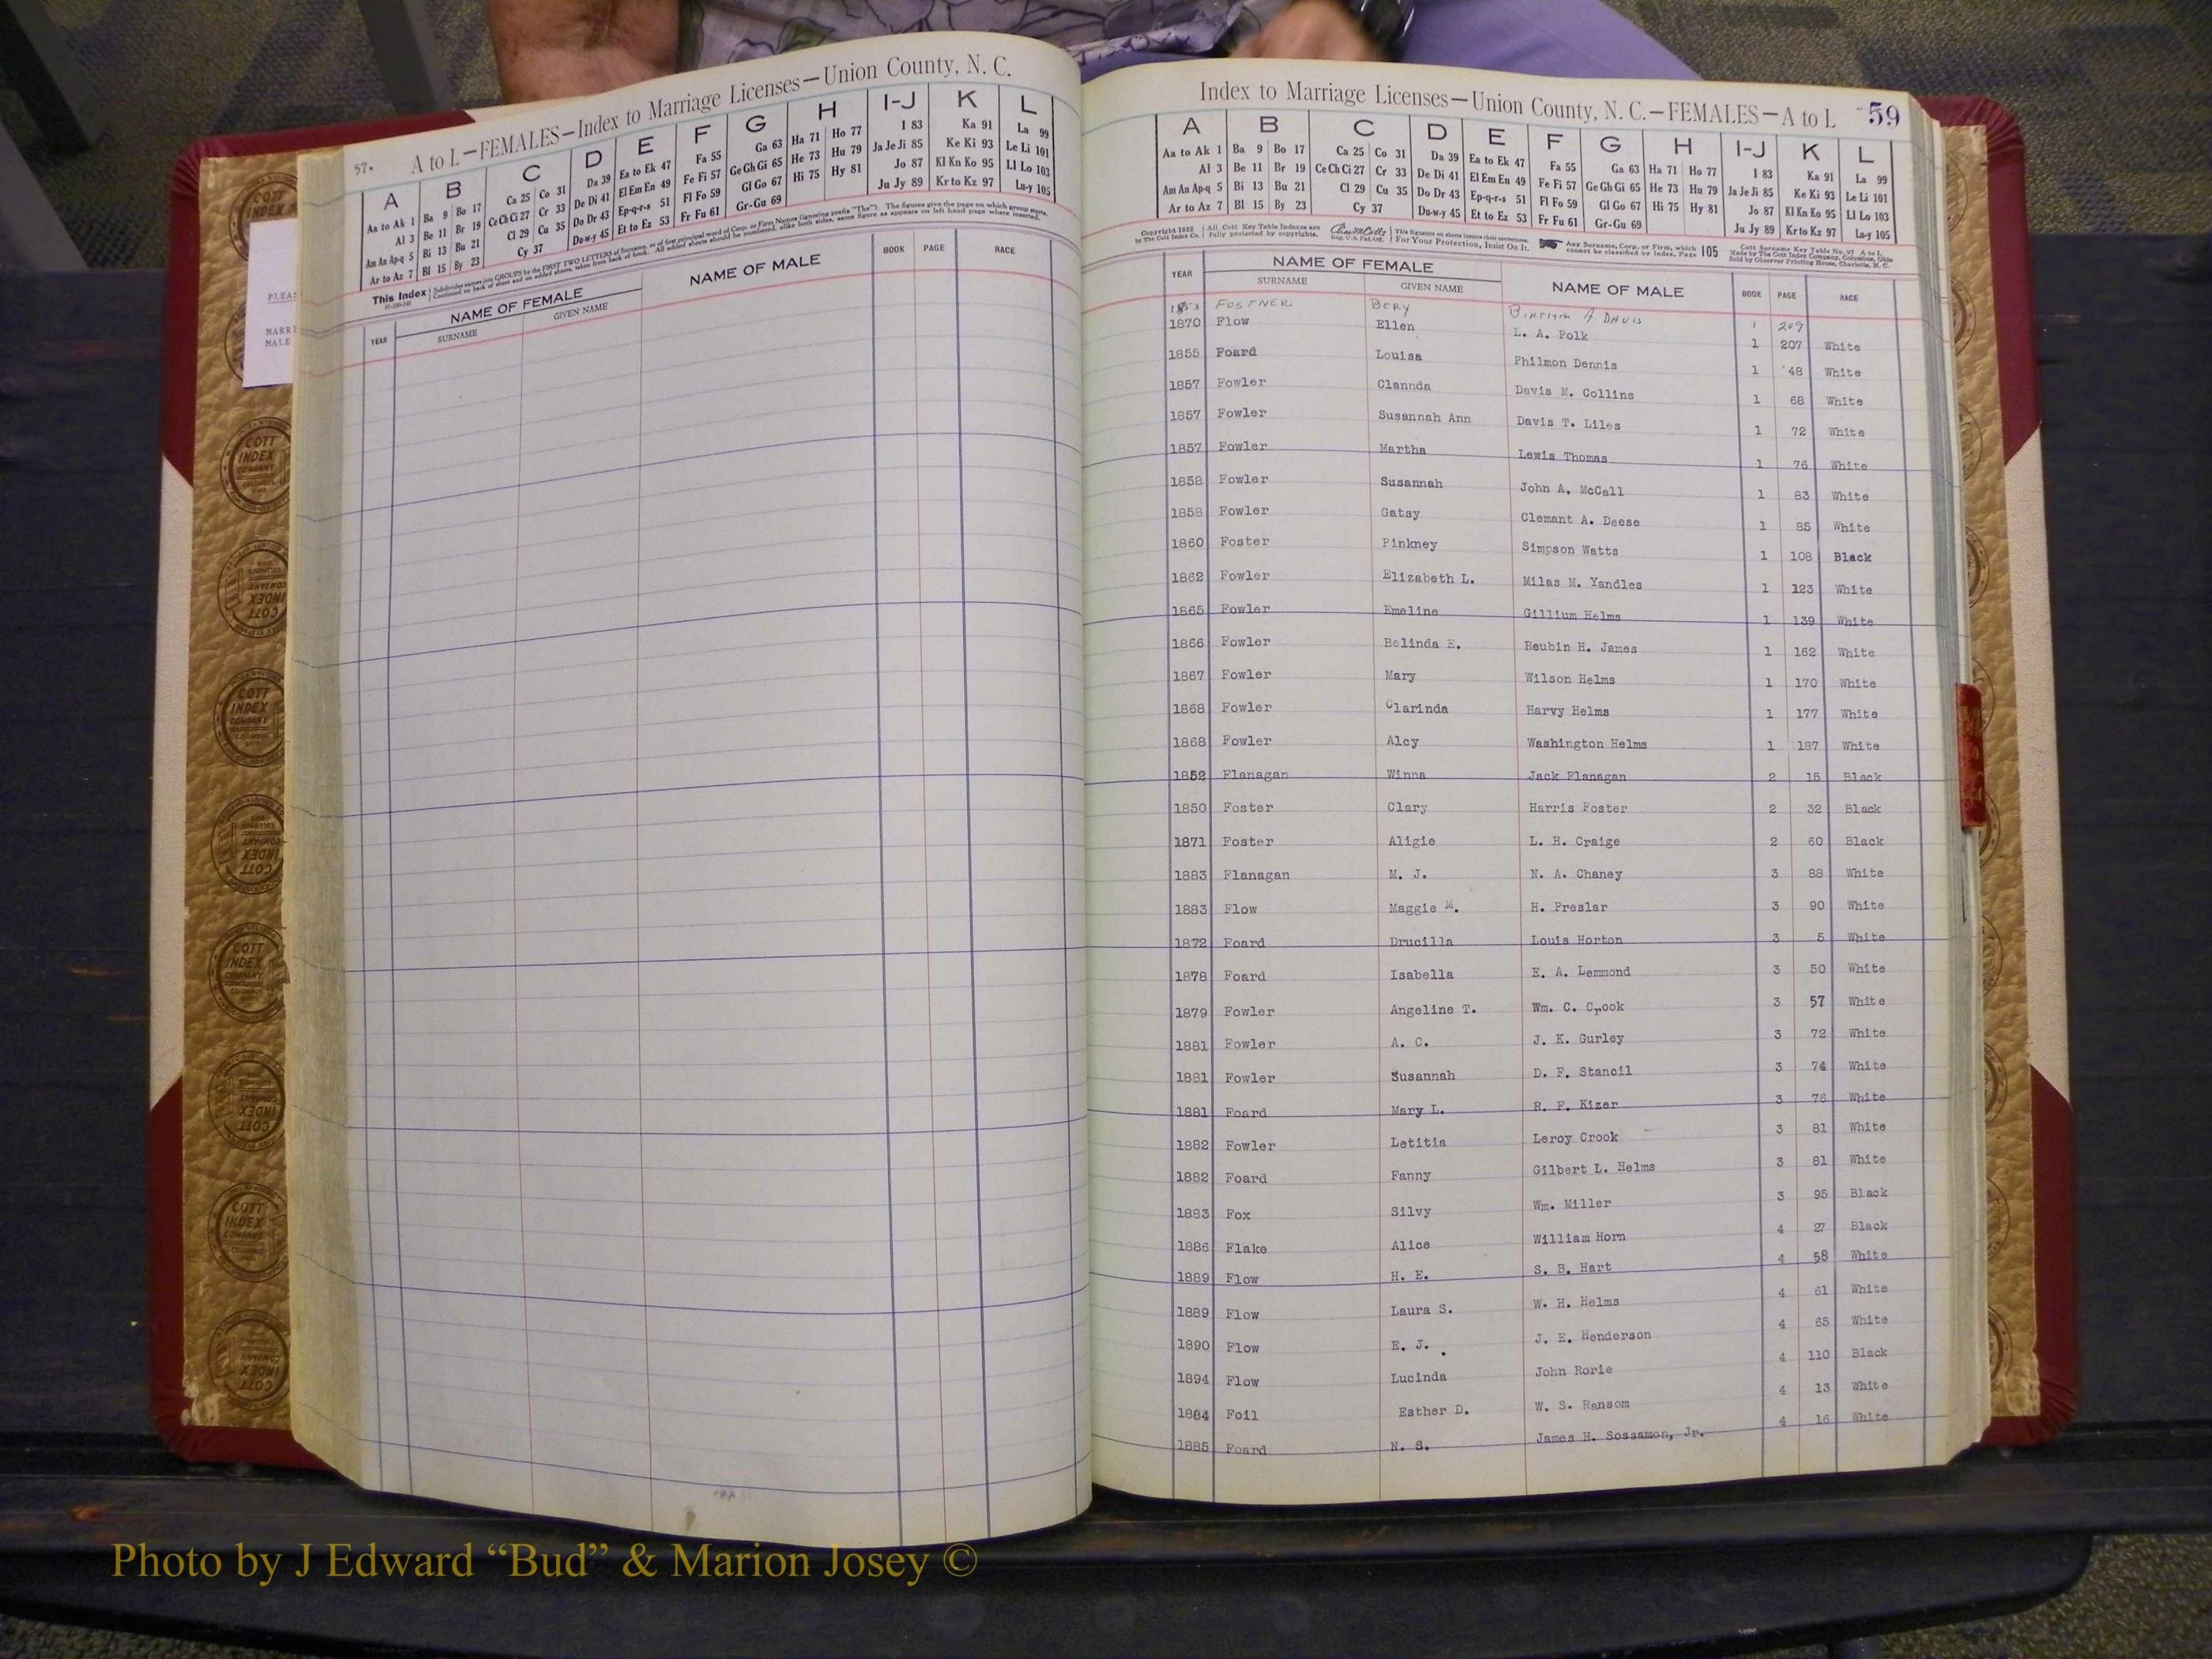 57.
A to L—FEMALES—Index to Marriage Licenses—Union County, N. C.
A B C D E F G H I-J K L
Aa to Ak 1 Ba 9 Bo 17 Ca 25 Co 31 Da 39 Ea to Ek 47 Fa 55 Ga 63 Ha 71 Ho 77 I 83 Ka 91 La 99
Al 3 Be 11 Br 19 Ce Ch Ci 27 Cr 33 De Di 41 El Em En 49 Fe Fi 57 Ge Gh Gi 65 He 73 Hu 79 Ja Je Ji 85 Ke Ki 93 Le Li 101
Am An Ap-q 5 Bi 13 Bu 21 Cl 29 Cu 35 Do Dr 43 Ep-q-r-s 51 Fl Fo 59 Gl Go 67 Hi 75 Hy 81 Jo 87 Kl Kn Ko 95 Ll Lo 103
Ar to Az 7 Bl 15 By 23 Cy 37 Du-w-y 45 Et to Ez 53 Fr Fu 61 Gr-Gu 69 Ju Jy 89 Kr to Kz 97 Lu-y 105
This Index
YEAR NAME OF FEMALE NAME OF MALE BOOK PAGE RACE
SURNAME GIVEN NAME
PLEAS
MARRI
MALE
Index to Marriage Licenses—Union County, N. C.—FEMALES—A to L 59
A B C D E F G H I-J K L
Aa to Ak 1 Ba 9 Bo 17 Ca 25 Co 31 Da 39 Ea to Ek 47 Fa 55 Ga 63 Ha 71 Ho 77 I 83 Ka 91 La 99
Al 3 Be 11 Br 19 Ce Ch Ci 27 Cr 33 De Di 41 El Em En 49 Fe Fi 57 Ge Gh Gi 65 He 73 Hu 79 Ja Je Ji 85 Ke Ki 93 Le Li 101
Am An Ap-q 5 Bi 13 Bu 21 Cl 29 Cu 35 Do Dr 43 Ep-q-r-s 51 Fl Fo 59 Gl Go 67 Hi 75 Hy 81 Jo 87 Kl Kn Ko 95 Ll Lo 103
Ar to Az 7 Bl 15 By 23 Cy 37 Du-w-y 45 Et to Ez 53 Fr Fu 61 Gr-Gu 69 Ju Jy 89 Kr to Kz 97 Lu-y 105
Copyright 1932 by The Cott Index Co. All Cott Key Table Indexes are fully protected by copyrights. For Your Protection, Insist On It. Any Surname, Corp. or Firm, which cannot be classified by Index, Page 105
YEAR NAME OF FEMALE NAME OF MALE BOOK PAGE RACE
SURNAME GIVEN NAME
1853 FOSTNER BERY A DAVIS 1 209
1870 Flow Ellen L. A. Polk 1 207 White
1855 Foard Louisa Philmon Dennis 1 48 White
1857 Fowler Clannda Davis M. Collins 1 68 White
1857 Fowler Susannah Ann Davis T. Liles 1 72 White
1857 Fowler Martha Lewis Thomas 1 76 White
1858 Fowler Susannah John A. McCall 1 83 White
1858 Fowler Gatsy Clemant A. Deese 1 85 White
1860 Foster Pinkney Simpson Watts 1 108 Black
1862 Fowler Elizabeth L. Milas M. Yandles 1 123 White
1865 Fowler Emeline Gillium Helms 1 139 White
1866 Fowler Belinda E. Reubin H. James 1 162 White
1867 Fowler Mary Wilson Helms 1 170 White
1868 Fowler Clarinda Harvy Helms 1 177 White
1868 Fowler Alcy Washington Helms 1 187 White
1852 Flanagan Winna Jack Flanagan 2 15 Black
1850 Foster Clary Harris Foster 2 32 Black
1871 Foster Aligie L. H. Craige 2 60 Black
1883 Flanagan M. J. N. A. Chaney 3 88 White
1883 Flow Maggie M. H. Preslar 3 90 White
1872 Foard Drucilla Louis Horton 3 5 White
1878 Foard Isabella E. A. Lemmond 3 50 White
1879 Fowler Angeline T. Wm. C. Crook 3 57 White
1881 Fowler A. C. J. K. Gurley 3 72 White
1881 Fowler Susannah D. F. Stancil 3 74 White
1881 Foard Mary L. R. F. Kizer 3 76 White
1882 Fowler Letitia Leroy Crook 3 81 White
1882 Foard Fanny Gilbert L. Helms 3 81 White
1883 Fox Silvy Wm. Miller 3 95 Black
1886 Flake Alice William Horn 4 27 Black
1889 Flow H. E. S. B. Hart 4 58 White
1889 Flow Laura S. W. H. Helms 4 61 White
1890 Flow E. J. J. E. Henderson 4 65 White
1894 Flow Lucinda John Rorie 4 110 Black
1884 Foil Esther D. W. S. Ransom 4 13 White
1885 Foard N. S. James H. Sossamon, Jr. 4 16 White
COTT INDEX COMPANY
Photo by J Edward “Bud” & Marion Josey ©